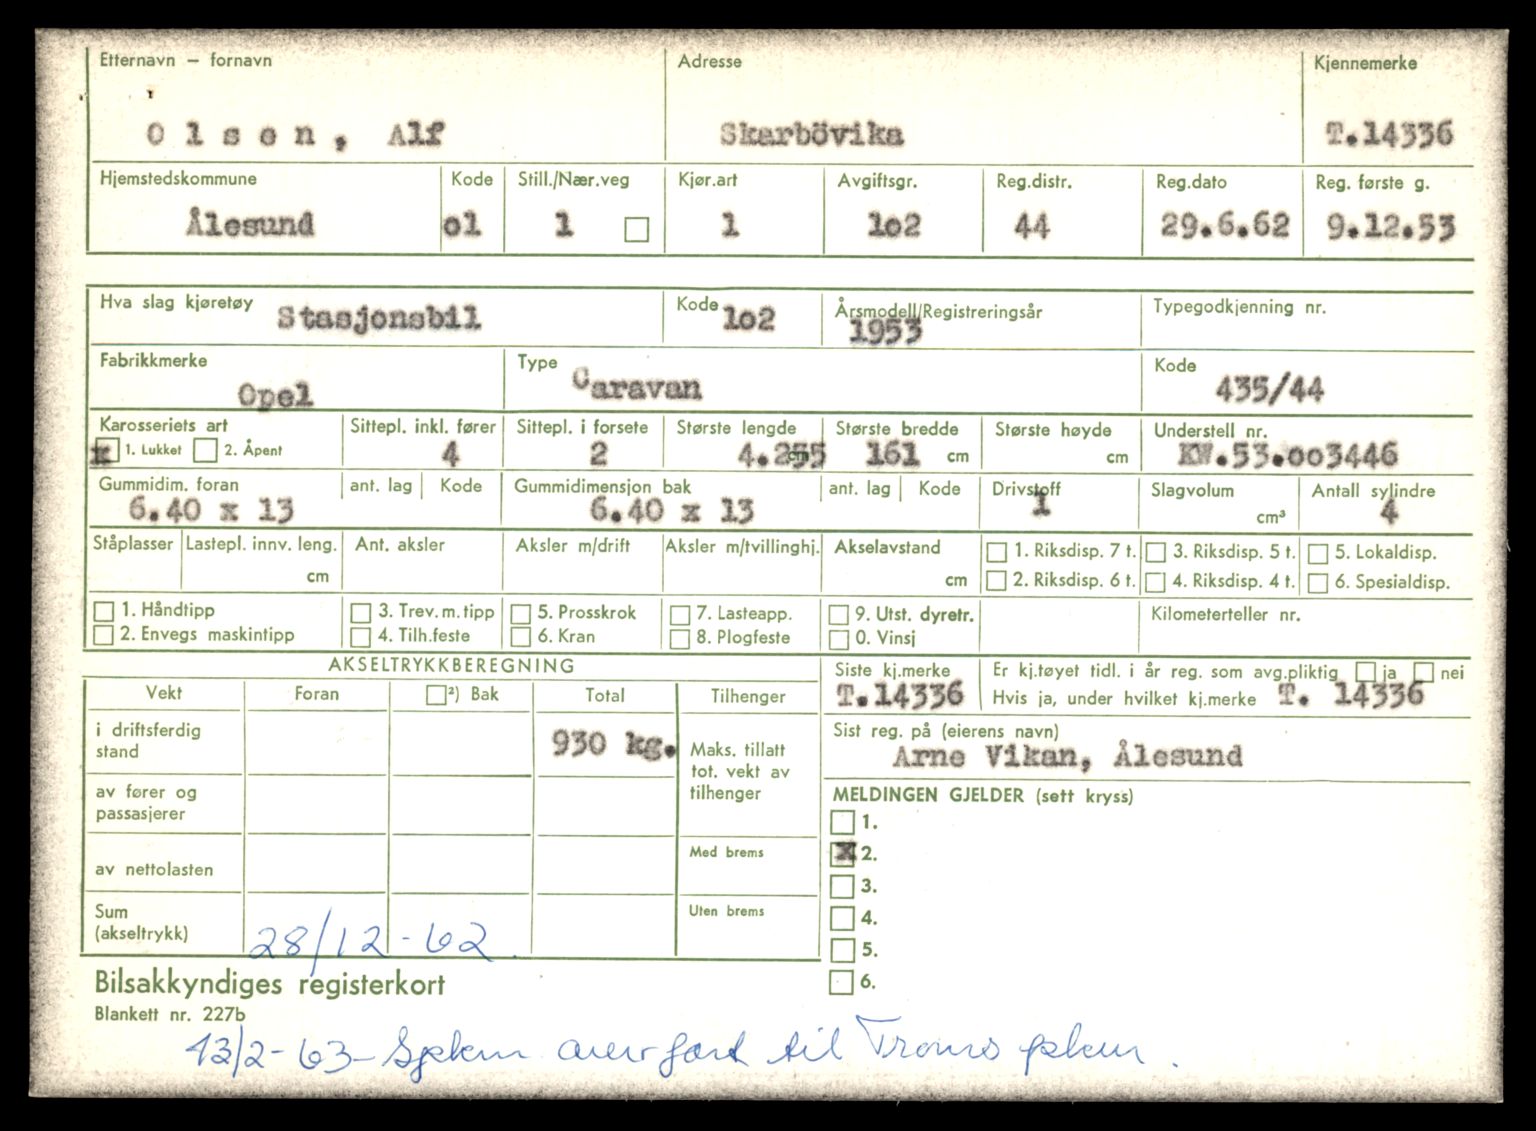 Etternavn – fornavn Adresse Kjennemerke
Olsen, Alf Skarbövika T.14336
Hjemstedskommune Kode Still./Nær.veg Kjør.art Avgiftsgr. Reg.distr. Reg.dato Reg. første g.
Ålesund o1 1 1 1o2 44 29.6.62 9.12.53
Hva slag kjøretøy Stasjonsbil Kode 1o2 Årsmodell/Registreringsår 1953 Typegodkjenning nr.
Fabrikkmerke Opel Type Caravan Kode 435/44
Karosseriets art Sittepl. inkl. fører Sittepl. i forsete Største lengde Største bredde Største høyde Understell nr.
x 1. Lukket 2. Åpent 4 2 4.255 cm 161 cm cm KW.53.oo3446
Gummidim. foran ant. lag Kode Gummidimensjon bak ant. lag Kode Drivstoff Slagvolum Antall sylindre
6.40 x 13 6.40 x 13 1 cm³ 4
Ståplasser Lastepl. innv. leng. Ant. aksler Aksler m/drift Aksler m/tvillinghj. Akselavstand 1. Riksdisp. 7 t. 3. Riksdisp. 5 t. 5. Lokaldisp.
cm cm 2. Riksdisp. 6 t. 4. Riksdisp. 4 t. 6. Spesialdisp.
1. Håndtipp 3. Trev. m. tipp 5. Prosskrok 7. Lasteapp. 9. Utst. dyretr. Kilometerteller nr.
2. Envegs maskintipp 4. Tilh.feste 6. Kran 8. Plogfeste 0. Vinsj
AKSELTRYKKBEREGNING Siste kj.merke Er kj.tøyet tidl. i år reg. som avg.pliktig ja nei
Vekt Foran ²) Bak Total Tilhenger T.14336 Hvis ja, under hvilket kj.merke T. 14336
i driftsferdig stand 930 kg. Maks. tillatt tot. vekt av tilhenger
Sist reg. på (eierens navn)
Arne Vikan, Ålesund
av fører og passasjerer
MELDINGEN GJELDER (sett kryss)
1.
x 2.
av nettolasten Med brems
3.
Sum (akseltrykk) Uten brems
4.
28/12-62.
5.
6.
Bilsakkyndiges registerkort
Blankett nr. 227b
13/2-63 - Sjeken overført til Troms